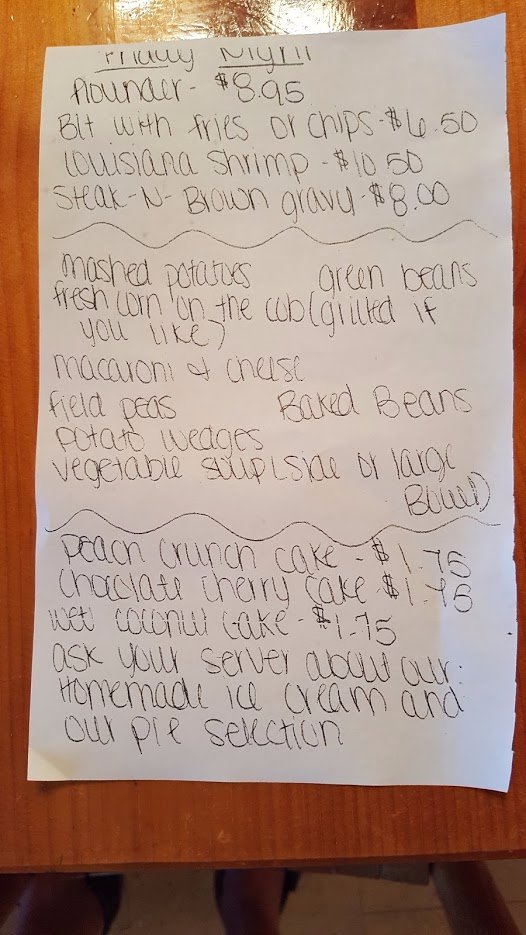 Friday Night
Flounder - $8.95
Blt with fries or chips - $6.50
Louisiana Shrimp - $10.50
Steak-N-Brown gravy - $8.00
mashed potatoes green beans
fresh corn on the cob (grilled if
you like)
macaroni & cheese
field peas Baked Beans
potato wedges
vegetable soup (side or large
Bowl)
peach crunch cake - $1.75
chocolate cherry cake - $1.75
wet coconut cake - $1.75
ask your server about our:
Homemade ice cream and
our pie selection